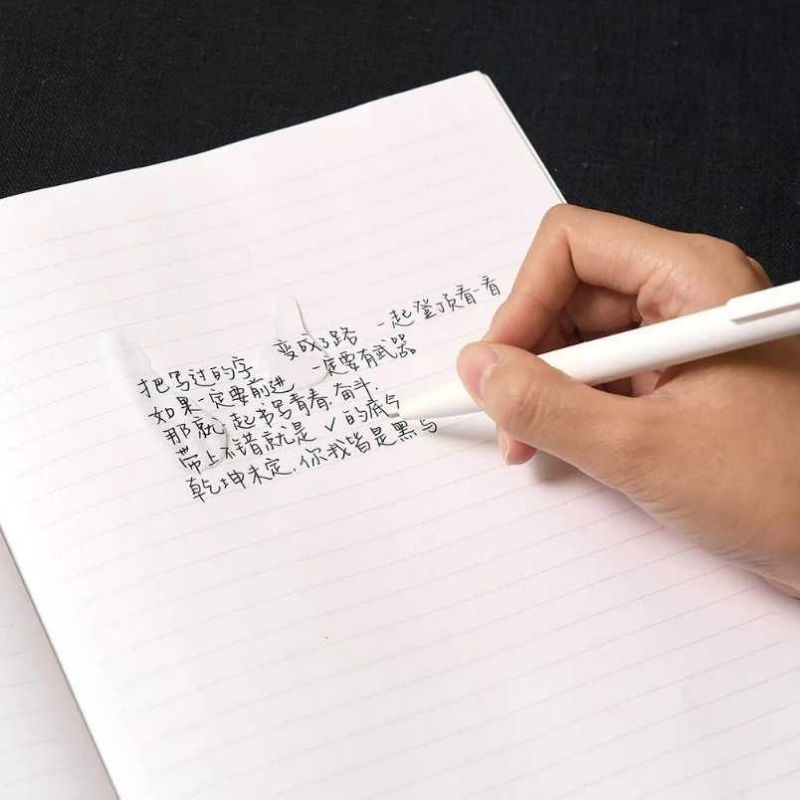 把写过的字 变成了路 一起登顶看一看
如果一定要前进 一定要有武器。
那就一起书写青春.奋斗.
带上不错就是✓的底气
乾坤未定.你我皆是黑马